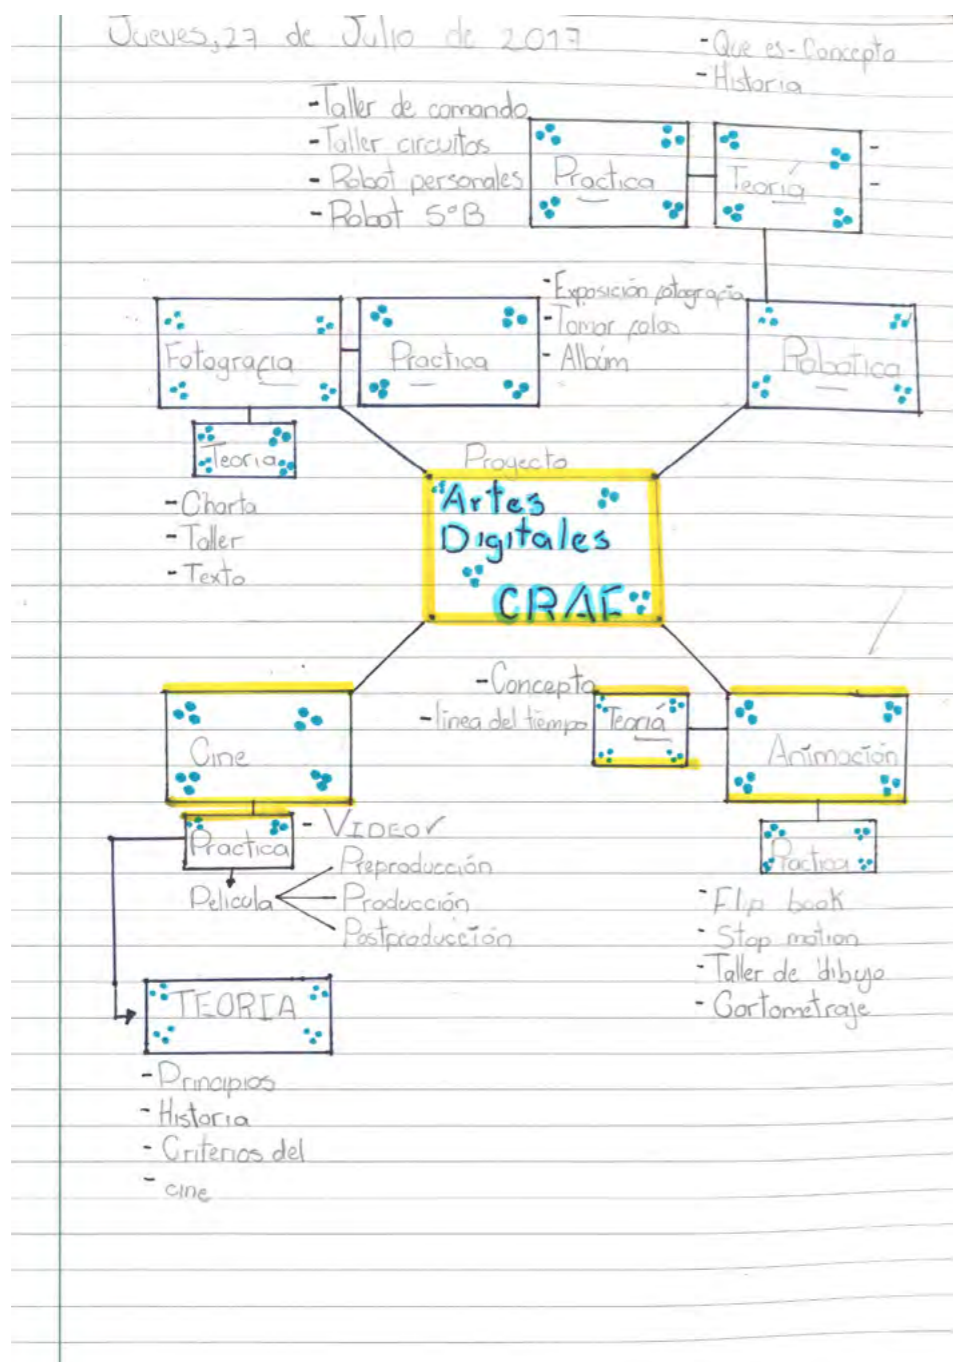 Jueves, 27 de Julio de 2017
- Que es - Concepto
- Historia
- Taller de comando
- Taller circuitos
- Robot personales
- Robot 5°B
Practica
Teoriá
-
-
Fotografia
Practica
- Exposición fotografia
- Tomar fotos
- Albúm
Robotica
Teoria
- Charla
- Taller
- Texto
Proyecto
Artes
Digitales
CRAE
Cine
- Concepto
- linea del tiempo
Teoriá
Animación
Practica
- VIDEO
Pelicula
Preproducción
Producción
Postproducción
Practica
- Flip book
- Stop motion
- Taller de dibujo
- Cortometraje
TEORIA
- Principios
- Historia
- Criterios del
- cine